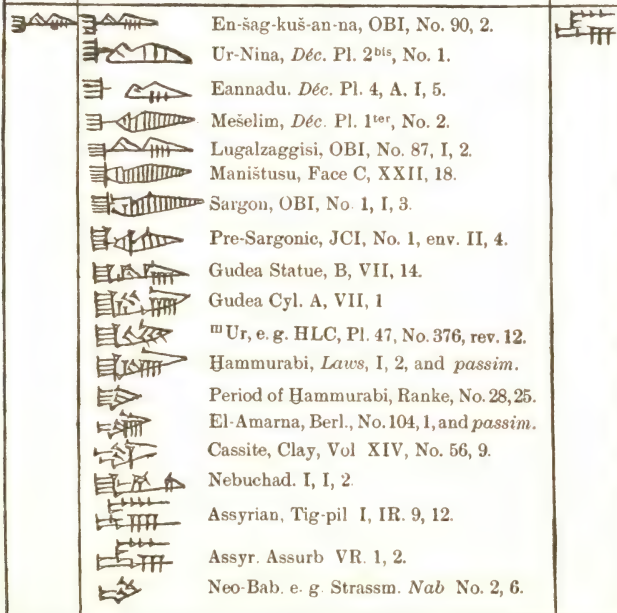 En-šag-kuš-an-na, OBI, No. 90, 2.
Ur-Nina, Déc. Pl. 2bis, No. 1.
Eannadu. Déc. Pl. 4, A. I, 5.
Mešelim, Déc. Pl. 1ter, No. 2.
Lugalzaggisi, OBI, No. 87, I, 2.
Maništusu, Face C, XXII, 18.
Sargon, OBI, No. 1, I, 3.
Pre-Sargonic, JCI, No. 1, env. II, 4.
Gudea Statue, B, VII, 14.
Gudea Cyl. A, VII, 1
mUr, e. g. HLC, Pl. 47, No. 376, rev. 12.
Ḫammurabi, Laws, I, 2, and passim.
Period of Ḫammurabi, Ranke, No. 28, 25.
El-Amarna, Berl., No. 104, 1, and passim.
Cassite, Clay, Vol XIV, No. 56, 9.
Nebuchad. I, I, 2.
Assyrian, Tig-pil I, IR. 9, 12.
Assyr. Assurb VR. 1, 2.
Neo-Bab. e. g. Strassm. Nab No. 2, 6.